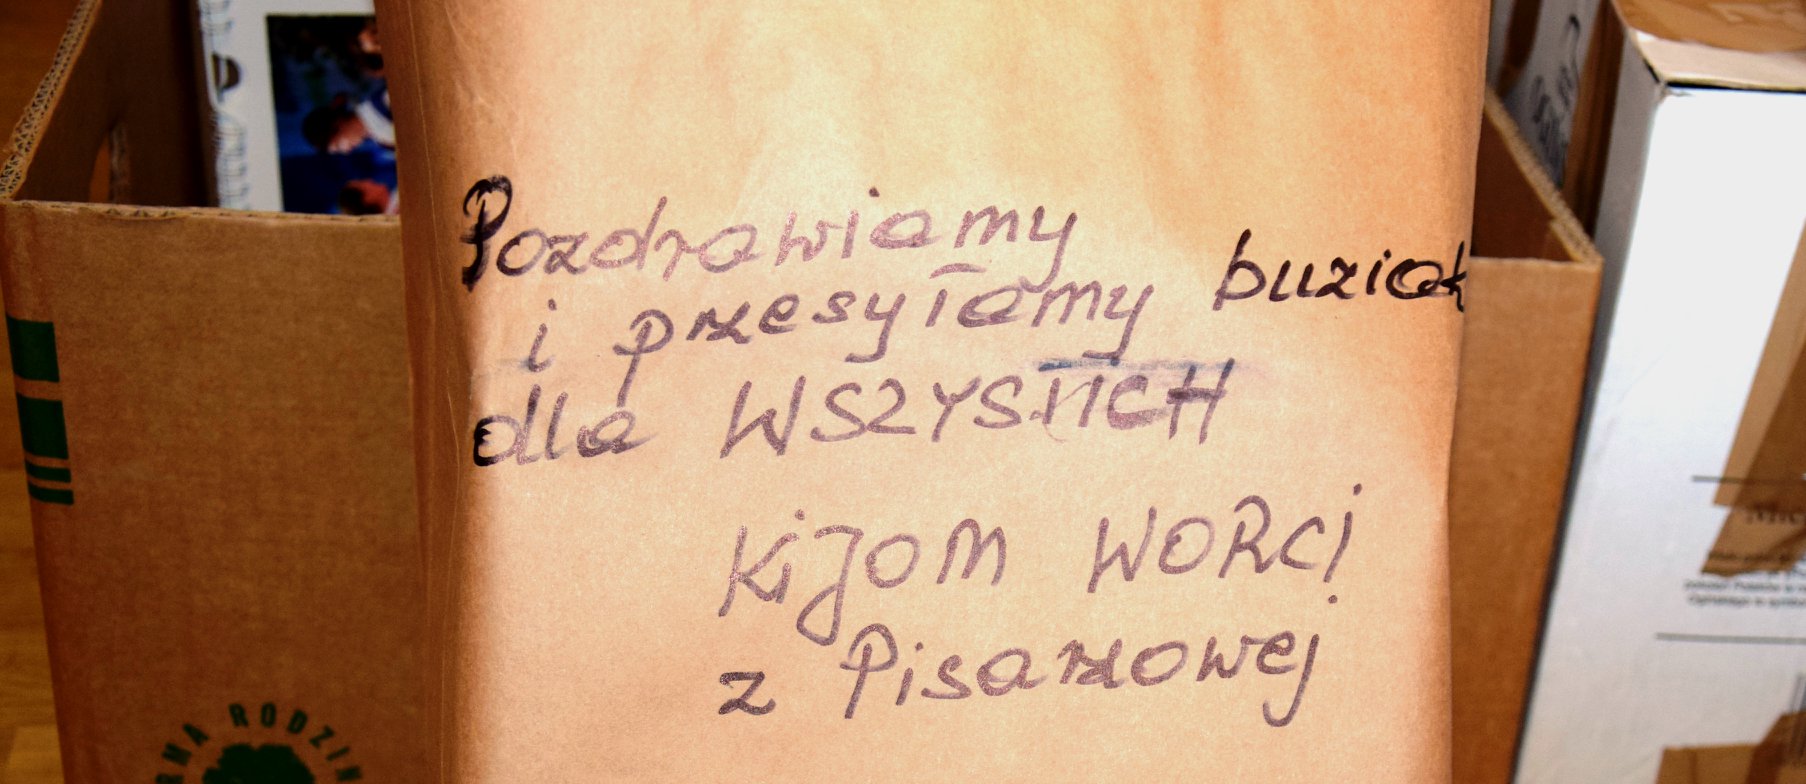 Pozdrawiamy
i przesyłamy buziak
dla WSZYSTKICH
KiJOM WORCI
z Pisarzowej
RMA RODZIN